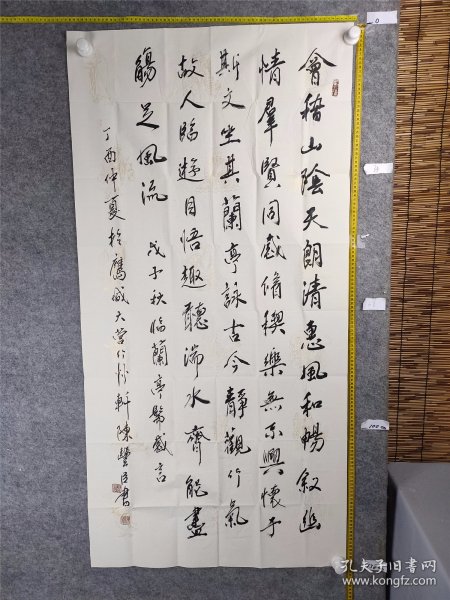 會稽山陰天朗清惠風和暢敘幽
情羣賢同感脩稧樂無不興懷予
斯文坐其蘭亭詠古今靜觀竹氣
故人臨遊目悟趣聽湍水齊能盡
觴足風流
戊子秋臨蘭亭署感言
丁酉仲夏於鷹城大營竹軒陳豐臣書
孔夫子旧书网
www.kongfz.com